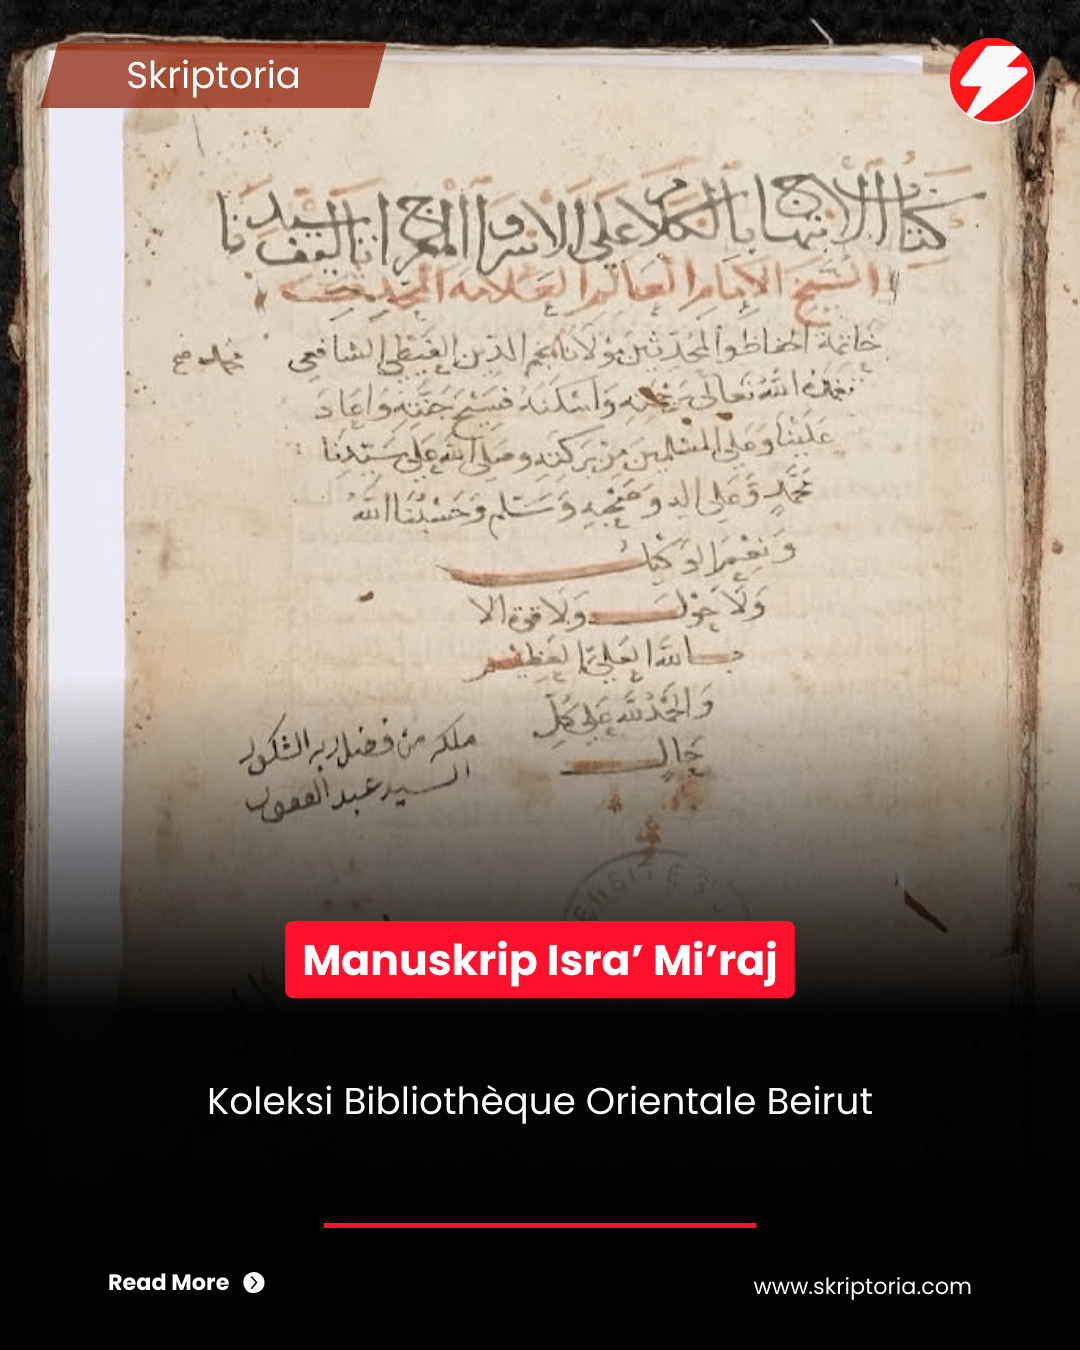 Skriptoria
كتاب الابتهاج بالكلام على الاسرا والمعراج تاليف سيدنا
الشيخ الامام العالم العلامه المحدث
خاتمة الحفاظ والمحدثين مولانا نجم الدين الغيطي الشافعي
تغمده الله تعالى برحمته واسكنه فسيح جنته واعاد
علينا وعلى المسلمين من بركته وصلى الله على سيدنا
محمد وعلى اله وصحبه وسلم وحسبنا الله
ونعم الوكيل
ولا حول ولا قوة الا
بالله العلي العظيم
والحمد لله على كل
حال
ملكه من فضل ربه الشكور
السيد عبد الغفور
Manuskrip Isra’ Mi’raj
Koleksi Bibliothèque Orientale Beirut
Read More
www.skriptoria.com